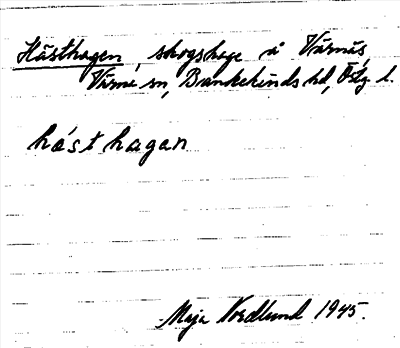 Hästhagen, skogshage å Värnäs,
Värna sn, Bankekinds hd, Östg l.
hästhagan
Maja Nordlund 1945.